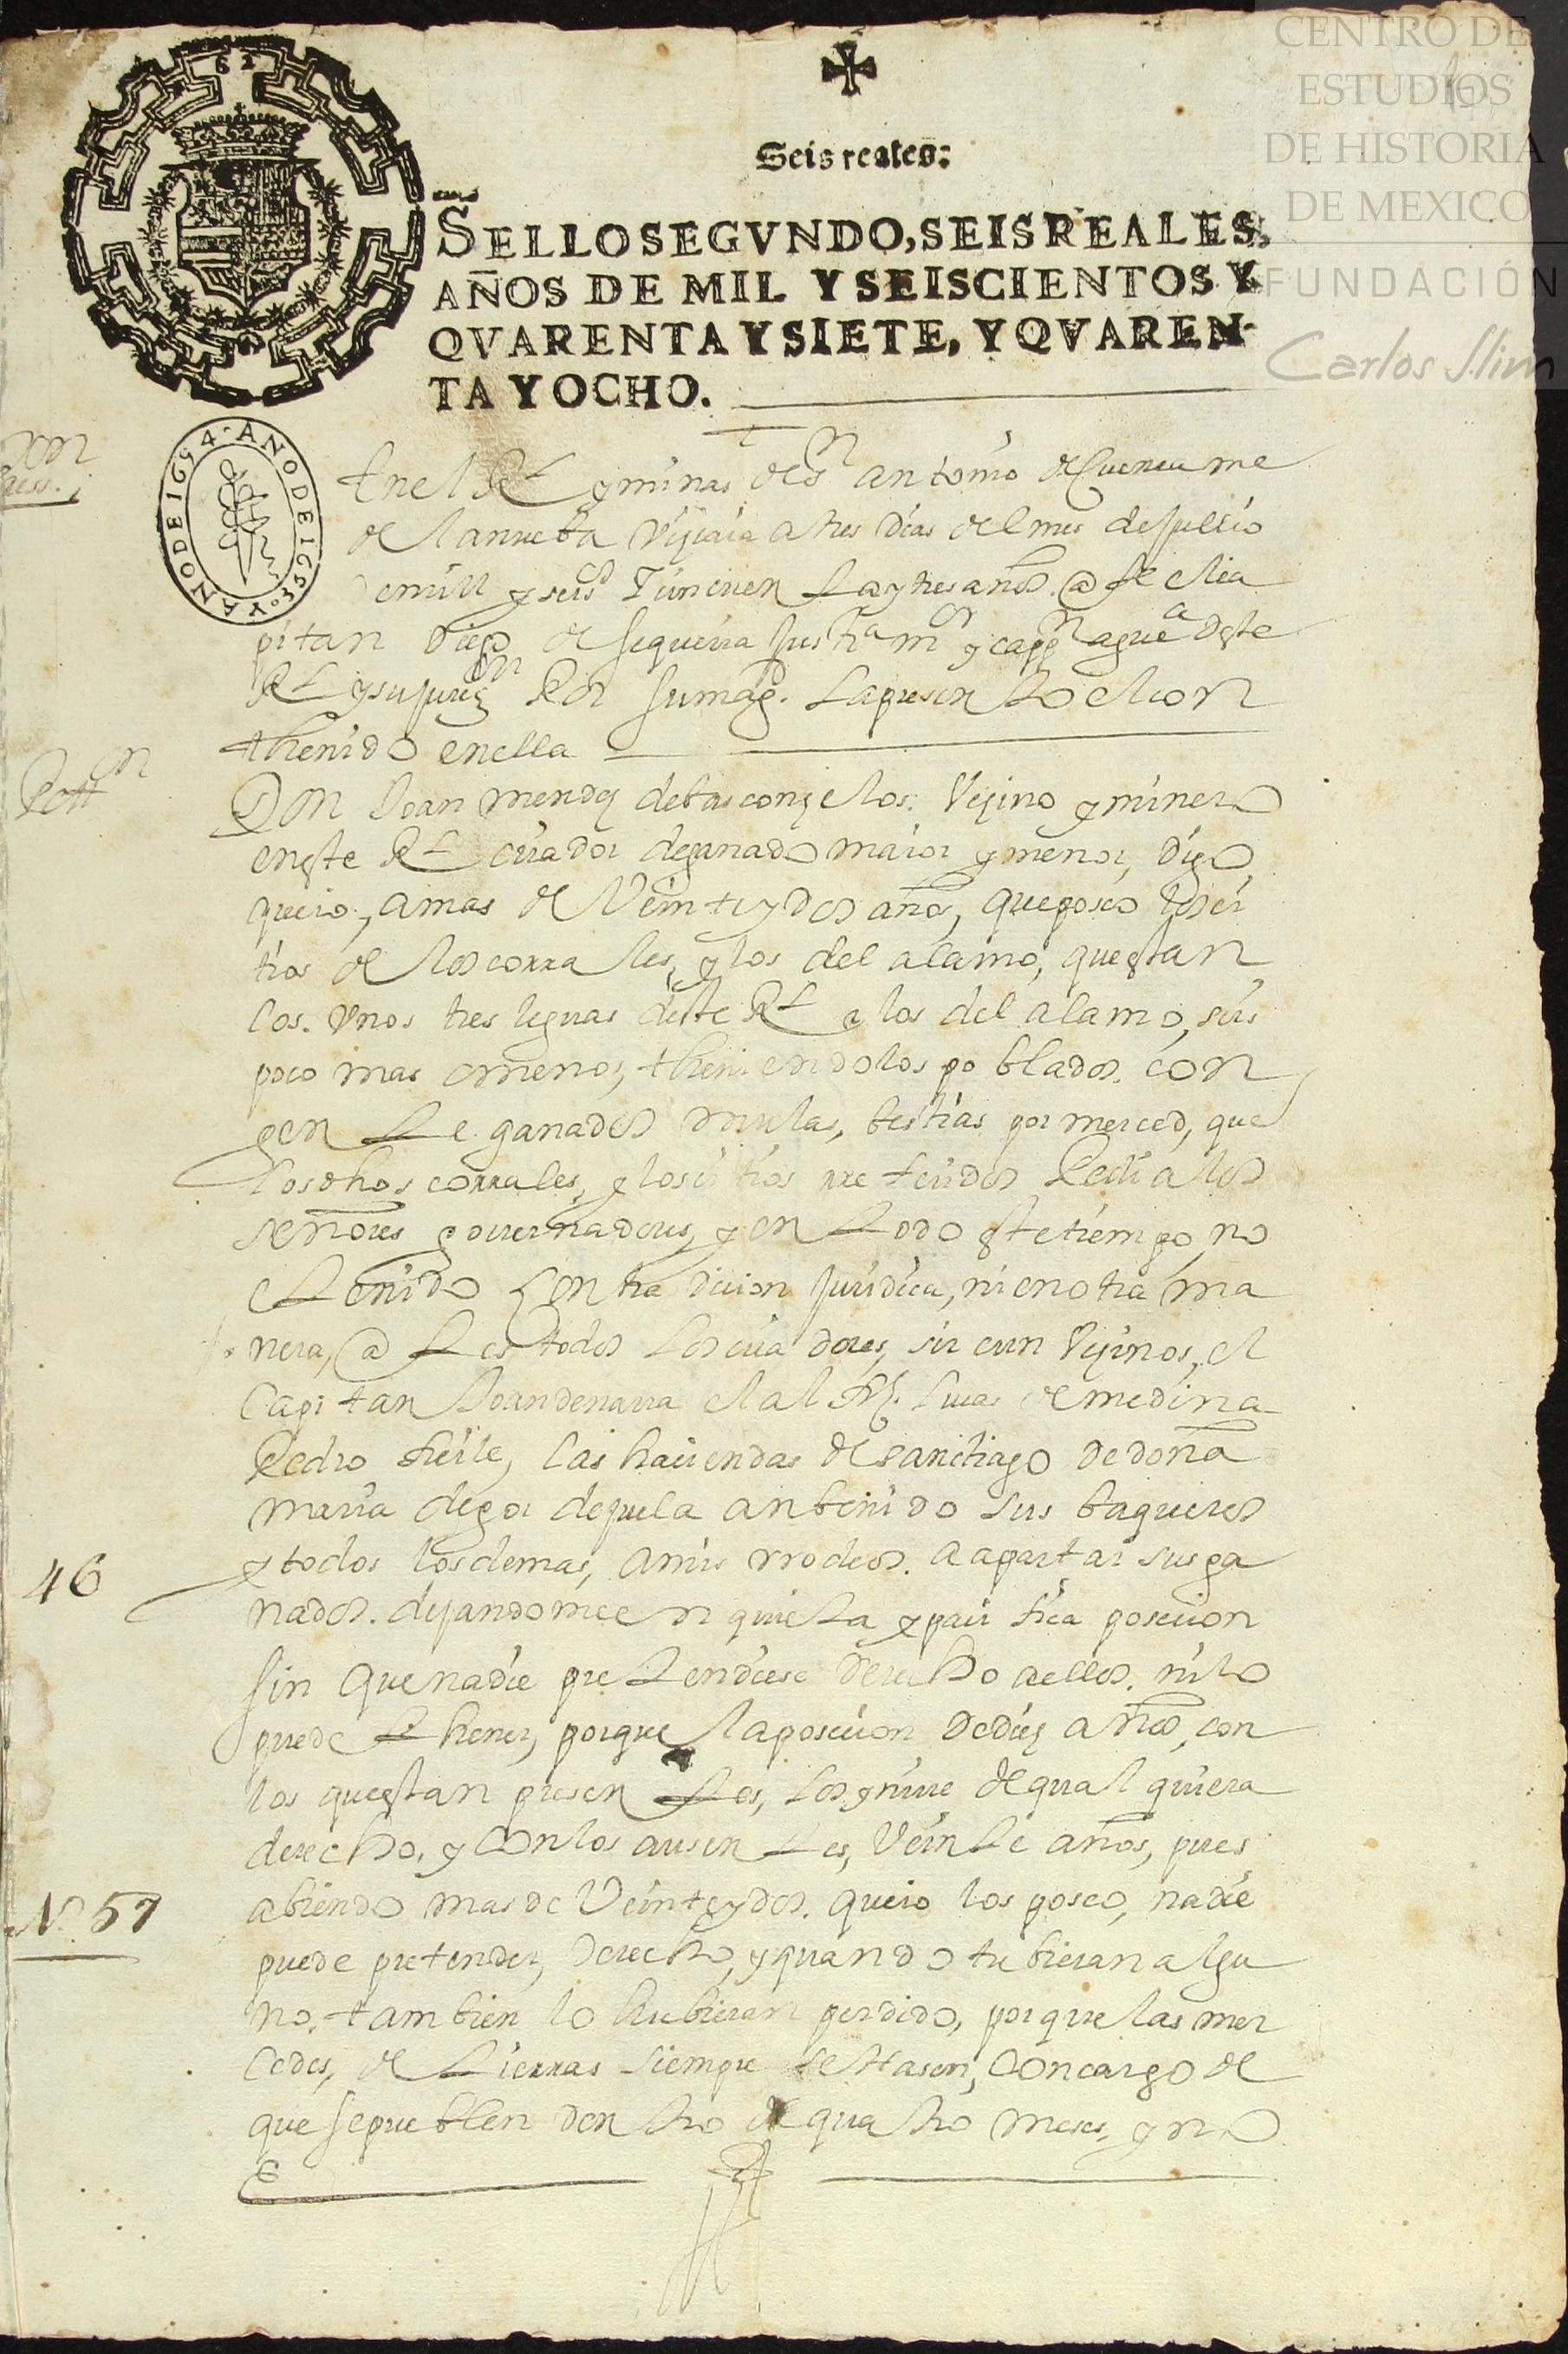 CENTRO DE
ESTUDIOS
DE HISTORIA
DE MEXICO
FUNDACIÓN
Carlos Slim
Seis reales:
SELLO SEGVNDO, SEIS REALES,
AÑOS DE MIL Y SEISCIENTOS Y
QVARENTA Y SIETE, Y QVAREN-
TA Y OCHO.
ANO DE 1653 · Y ANO DE 1654 ·
En el Rl y minas de sn antonio de Cuencame
de la nueba Vizcaia a tres dias del mes de Jullio
de mill y seisº Y cinquen ta y tres años @ te el ca
pitan Diego de sequeira Justª mor y cappn a guerª deste
Rl y su jurizon Por su magd. la presento el con
thenido en ella
Pettn
Don Joan mendez de basconzelos. Vezino y minero
en este Rl criador de ganado maior y menor, digo
que io, a mas de Veinte y dos años, que poseo los si
tios de los corrales, y los del alamo, que estan
los. Unos tres leguas deste Rl y los del alamo, seis
poco mas o menos, theniendolos poblados. con
gen te ganados mulas, bestias por merced, que
los dhos corrales, y los sitios rreferidos Pedi a los
señores governadores, y en todo este tiempo, no
e tenido contradicion Juridica, ni en otra ma
nera, @ tes todos los criadores, circun Vezinos, el
Capitan Joan de narra el alfrz. lucas de medina
Pedro freile, las haciendas de sanctiago de doña
maria de gor de juela an benido sus baqueros
y todos los demas, a mis rrodeos. a apartar sus ga
nados. dejandome en quieta y pacifica posecion
sin que nadie pretendiese derecho a ellos. ni lo
puede thener, porque la posecion de diez años, con
los que estan presentes, los de qualquiera
derecho, y con los ausentes, Veinte años, pues
abiendo mas de Veinte y dos. que io los poseo, nadie
puede pretender, derecho, y quando tubieran algu
no. tambien lo hubieran perdido, porque las mer
cedes, de tierras siempre se hasen, con cargo de
que se pueblen dentro de quatro meses, y no
46
No. 57